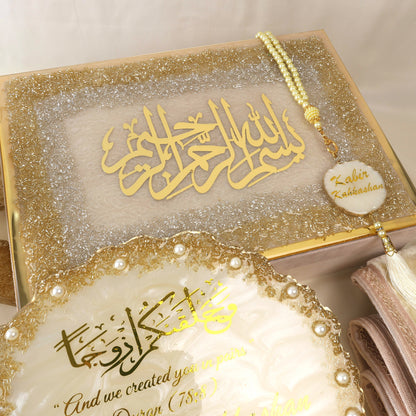 بسم الله الرحمن الرحيم
Kabir
Kahkashan
وخلقنكم أزوجا
"And we created you in pairs"
Quran (78:8)